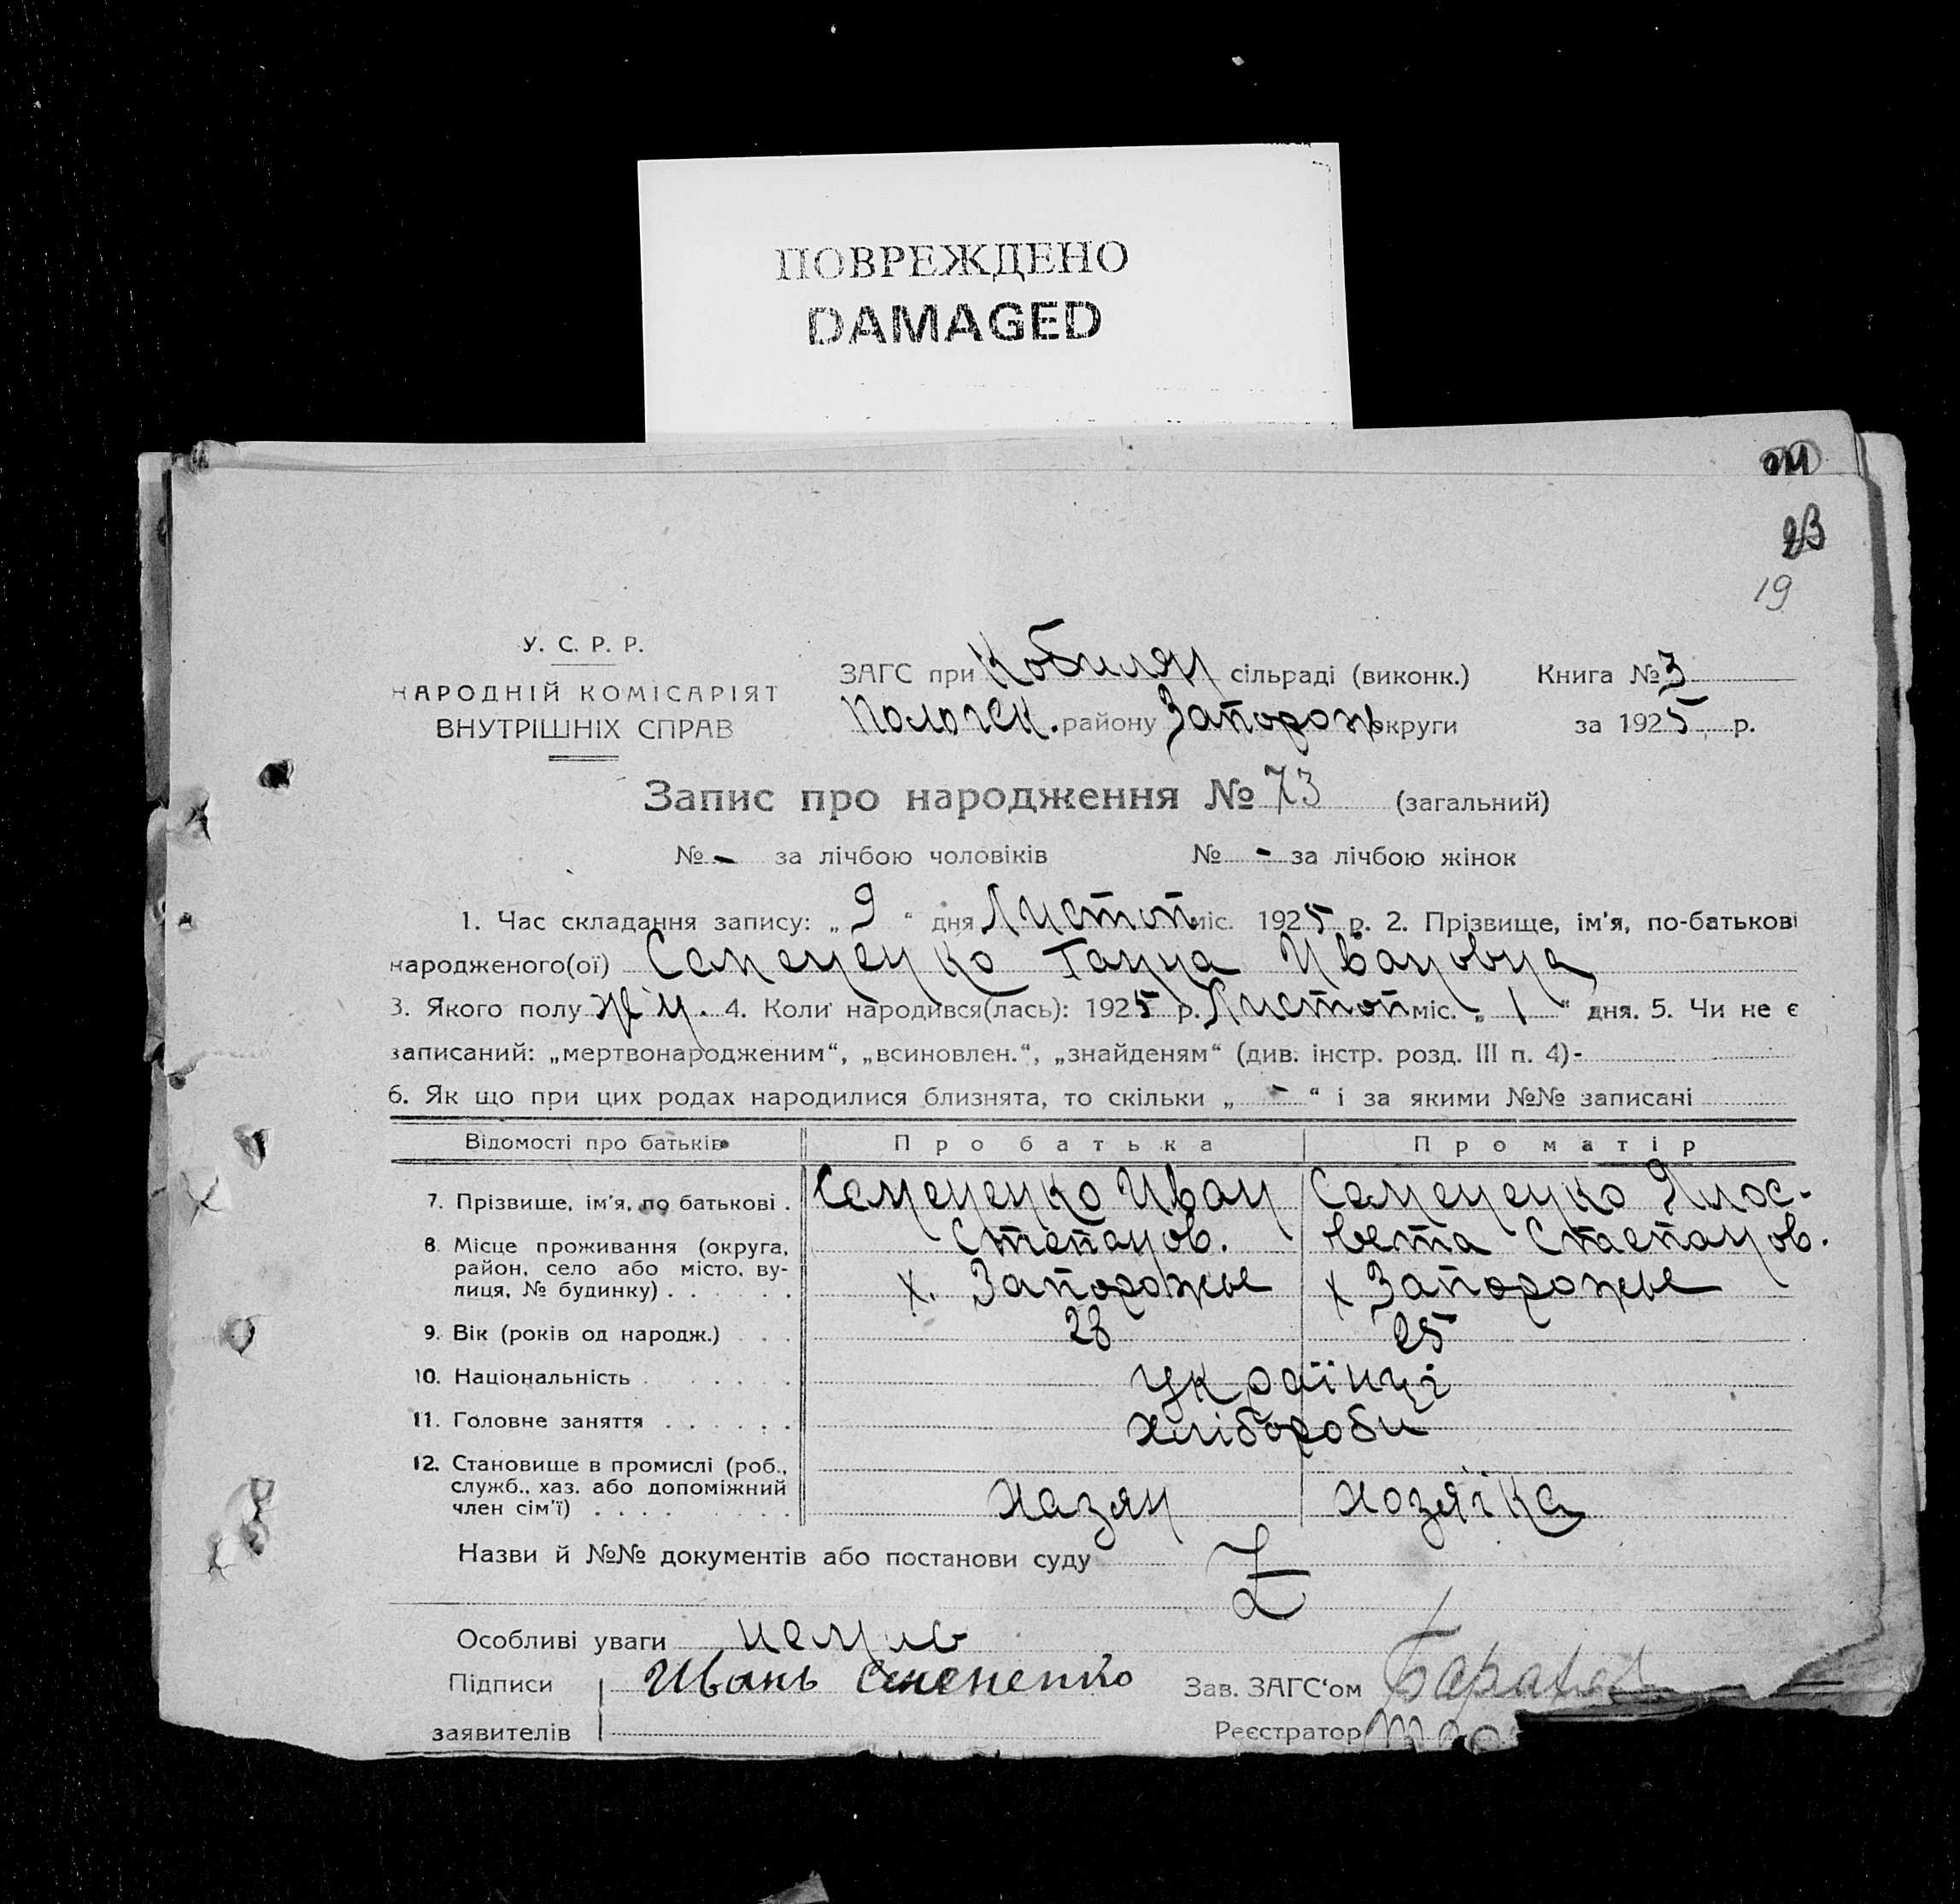 ПОВРЕЖДЕНО
DAMAGED
23
19
У. С. Р. Р.
НАРОДНІЙ КОМІСАРІЯТ
ВНУТРІШНІХ СПРАВ
ЗАГС при Кобиляц сільраді (виконк.) Книга № 3
Пологск. району Запорож округи за 1925 р.
Запис про народження № 73 (загальний)
№ - за лічбою чоловіків № - за лічбою жінок
1. Час складання запису: „ 9 “ дня Листоп міс. 1925 р. 2. Прізвище, ім'я, по-батькові
народженого(ої) Семененко Ганна Ивановна
3. Якого полу жін. 4. Коли народився(лась): 1925 р. Листоп міс. „ 1 “ дня. 5. Чи не є
записаний: „мертвонародженим“, „всиновлен.“, „знайденям“ (див. інстр. розд. III п. 4)-
6. Як що при цих родах народилися близнята, то скільки „ - “ і за якими №№ записані
Відомості про батьків Про батька Про матір
7. Прізвище, ім'я, по батькові . Семененко Иван Степанов. Семененко Ялосвета Степанов.
8. Місце проживання (округа, район, село або місто, вулиця, № будинку) . . . . . . х. Запорожье х Запорожье
9. Вік (років од народж.) . . . 28 25
10. Національність . . . . . . українці
11. Головне заняття . . . . . . хлібороби
12. Становище в промислі (роб., служб., хаз. або допоміжний член сім'ї) . . . . . . . . хазян хозяїка
Назви й №№ документів або постанови суду Z
Особливі уваги
Підписи Иванъ Семененко Зав. ЗАГС‘ом
заявителів Реєстратор